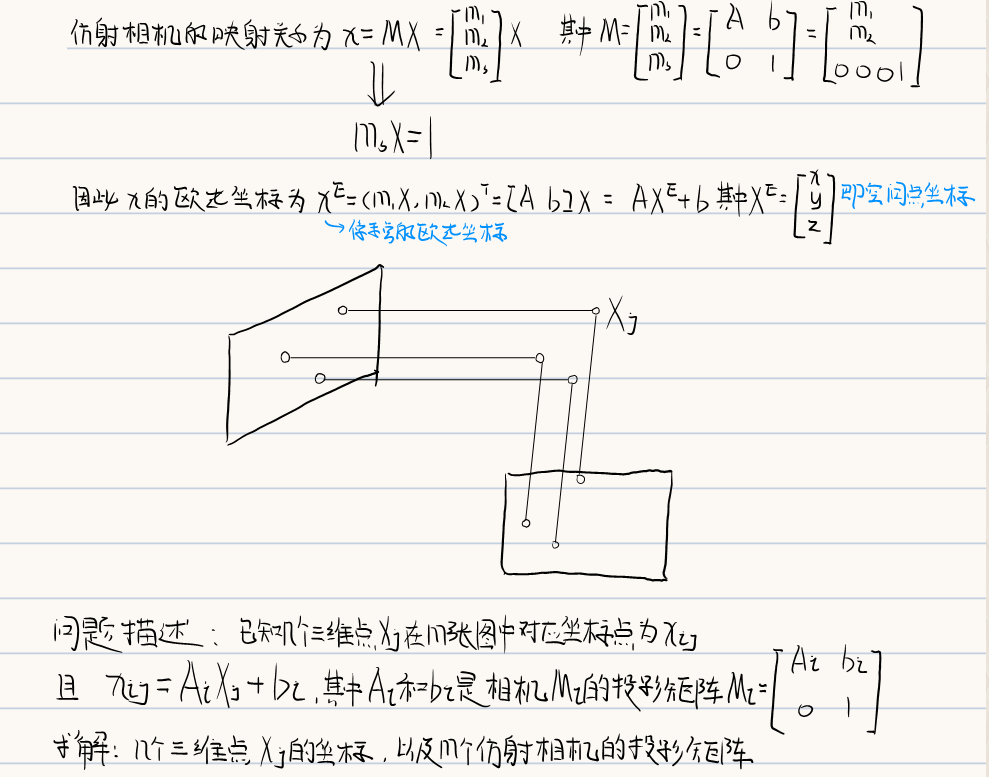 仿射相机的映射关系为 x = MX = [m₁ m₂ m₃] X 其中 M = [m₁ m₂ m₃] = [A b 0 1] = [m₁ m₂ 0 0 0 1]
⇓
m₃X = 1
因此 x 的欧式坐标为 xᴱ = (m₁X, m₂X)ᵀ = [A b]X = AXᴱ + b 其中 Xᴱ = [x y z] 即空间点坐标
→ 像素的欧式坐标
Xj
问题描述: 已知n个三维点Xj在m张图中对应坐标点为xij
且 xij = AiXj + bi, 其中Ai和bi是相机Mi的投影矩阵 Mi = [Ai bi 0 1]
求解: n个三维点Xj的坐标, 以及m个仿射相机的投影矩阵